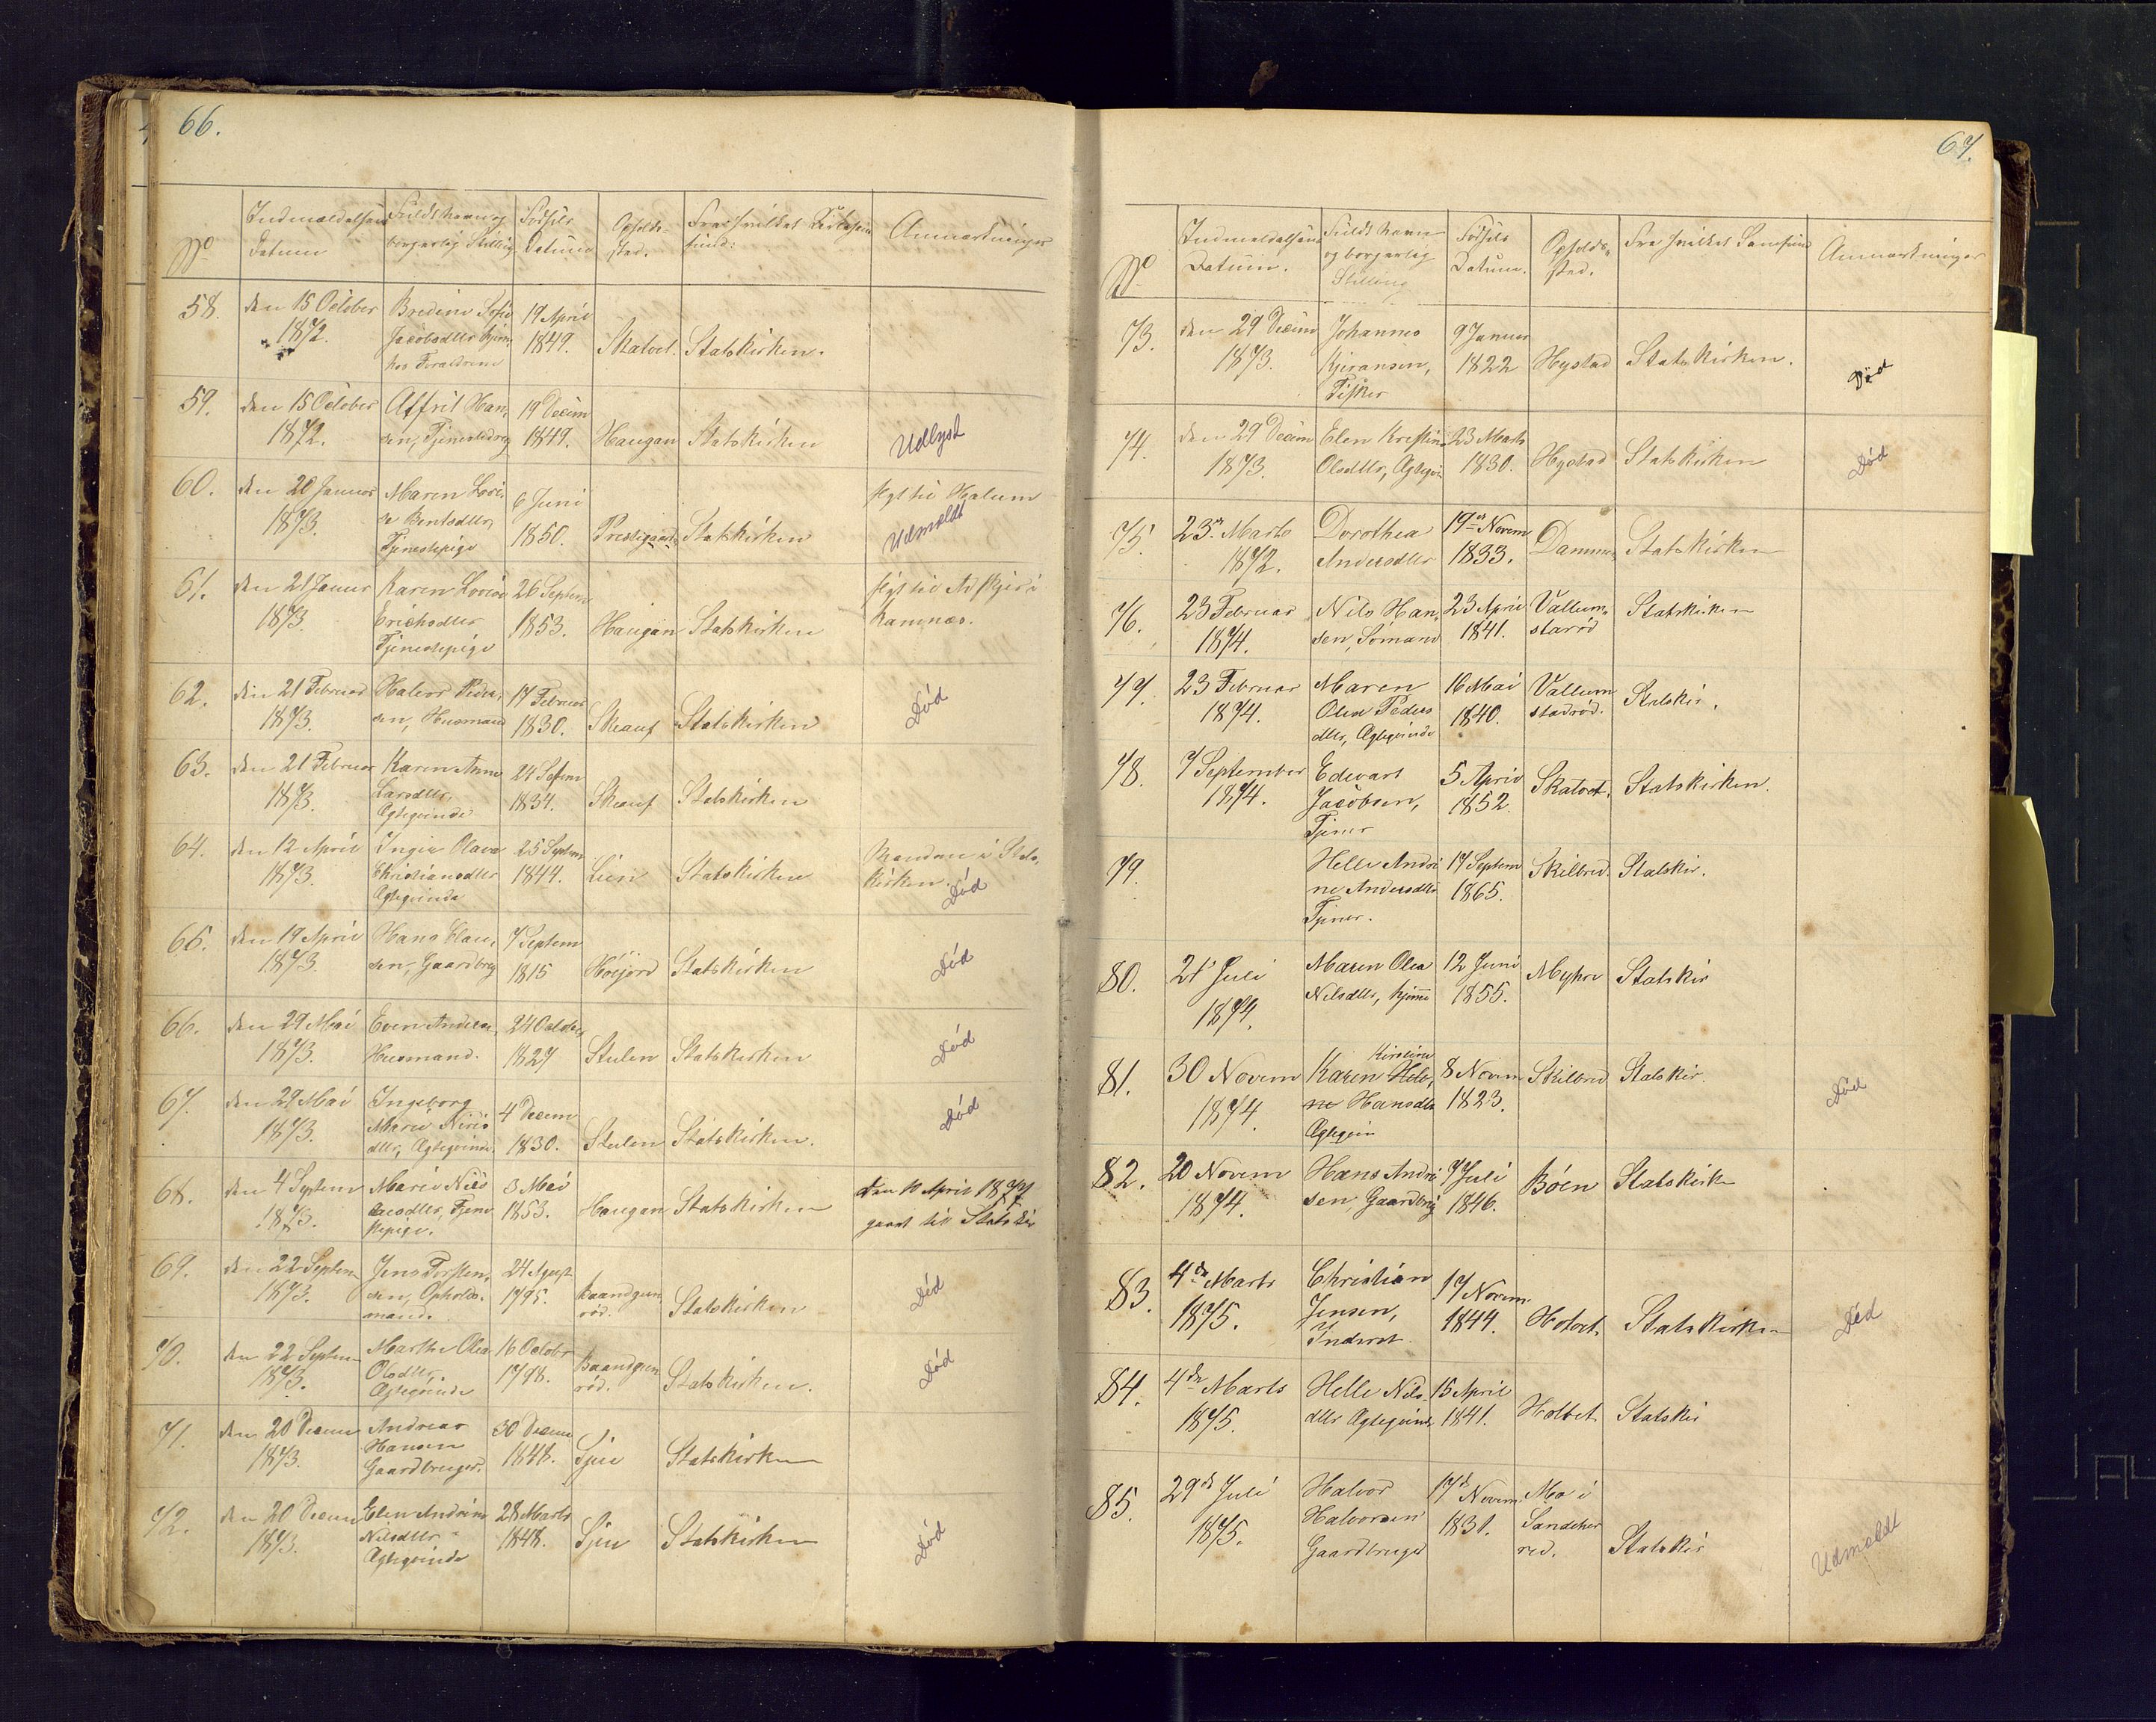 66.
No
Indmældelsens Datum
Fulds Navn og borgerlig Stilling
Fødsels Datum
Opholds-sted.
Fra hvilket Kirkesamfund:
Anmærkninger
58. den 15 October 1872. Sofie Jacobsdtr hos Foraldrene 17 April 1849. Skatvet. Statskirken.
59. den 15 October 1872. Affrit Hansen, Tjenestedreng 19 Decem 1849. Haugan Statskirken Udlyst
60. den 20 Januar 1873. Maren Lovise Berntsdtr, Tjenestepige 6 Juni 1850. Prestegaard Statskirken flyt til Halum Udmeldt
61. den 21 Januar 1873. Karen Lovise Erichsdtr Tjenestepige 26 Septem 1853. Haugan Statskirken flyt til Ramnæs.
62. den 21 Februar 1873. Halvor Peder,sen, Husmand 17 Februar 1830. Skauf Statskirken Død
63. den 21 Februar 1873. Karen Anne Larsdtr, Ægteqvinde 24 Septem 1834. Skauf Statskirken
64. den 12 April 1873. Inger Olava Christiansdtr Ægteqvinde 25 Septem 1844. Lien Statskirken Manden i Stats,kirken. Død
65. den 19 April 1873. Hans Clau,sen, Gaardbrug 7 Septem 1815 Høijord Statskirken Død
66. den 29 Mai 1873. Even Anderse, Husmand. 24 October 1827 Stulen Statskirken Død
67. den 29 Mai 1873. Ingeborg Marie Nils dtr, Ægteqvinde. 4 Decem 1830. Stulen Statskirken. Død
68. den 4 Septem 1873. Marie Nils dtr, Tjenestepige. 3 Mai 1853. Haugan Statskirken den 10 April 1877 gaaet till Statskir
69. den 22 Septem 1873. Jens Torsten,sen, Opholds-mand. 24 August 1795. Baandgunrød. Statskirken Død
70. den 22 Septem 1873. Marthe Olea Olsdtr, Ægteqvinde 16 Octobr 1798. Baandgunrød. Statskirken. Død
71. den 20 Decem 1873. Andreas Hansen Gaardbruger. 30 Decem 1848. Sjue Statskirken
72. den 20 Decem 1873. Elen Andrine Nilsdtr Ægteqvinde 28 Marts 1848. Sjue Statskirken Død
67.
No
Indmældelsens Datum.
Fulds Navn og borgerlig Stilling
Fødsels Datum.
Opholds-sted.
Fra hvilket Samfund
Anmærkninger
73. den 29 Decem 1873. Johannes Kjeransen, Fisker 9 Januar 1822 Hystad Statskirken. Død
74. den 29 Decem 1873. Elen Kristine Olsdtr, Ægteqv 23 Marts 1830. Hystad Statskirken Død
75. 23de Marts 1872. Dorothea Andersdtr 19de Novem 1833. Dammen Statskirken
76. 23 Februar 1874. Nils Han,sen, Sømand 23 April 1841. Vallumstarød Statskirken
77. 23 Februar 1874. Maren Olea Peders dtr, Ægteqvinde 16 Mai 1840. Vallumstadrød. Statskir.
78. 7 September 1874. Edvart Jacobsen, Tjener 5 April 1852. Skatvet. Statskirken.
79. Helle Andrine Andersdtr Tjener. 17 Septem 1865. Skilbred. Statskir.
80. 21 Juli 1874. Maren Olea Nilsdtr, hjemme 12 Juni 1855. Myhre Statskir
81. 30 Novem 1874. Karen Kirstine Helene Hansdtr Ægteqvin 8 Novem 1823. Skilbred Statskir. Død
82. 20 Novem 1874. Hans Andresen, Gaardbrug 7 Juli 1846. Bøen Statskirk
83. 4de Marts 1875. Christian Jensen, Inderst. 17 Novem 1844. Holvet. Statskirken Død
84. 4de Marts 1875. Helle Nilsdtr Ægteqvinde 15 April 1841. Holvet Statskir
85. 29de Juli 1875. Halvor Halvorsen Gaardbruger 17de Novem 1831. Mo i Sandeherred. Statskir Udmeldt